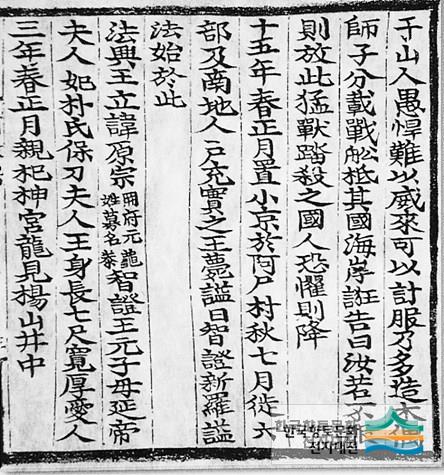 于山人愚悍難以威來可以計服乃多造木偶
師子分載戰舩抵其國海岸誑告曰汝若不
則放此猛獸踏殺之國人恐懼則降
十五年春正月置小京於阿尸村秋七月徙六
部及南地人戶充實之王薨謚曰智證新羅謚
法始於此
法興王立諱原宗冊府元龜姓募名泰智證王元子母延帝
夫人妃朴氏保刀夫人王身長七尺寬厚愛人
三年春正月親祀神宮龍見楊山井中
한국향토문화
전자대전